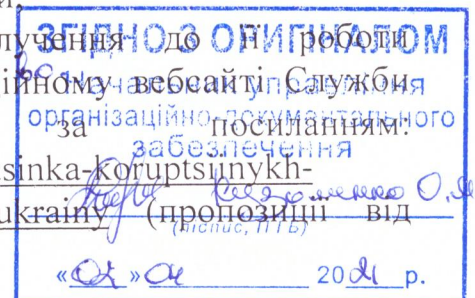 и,
лучення до її роботи
ЗГІДНО З ОРИГІНАЛОМ
ційному вебсайті Служби
Начальник управління
організаційно-документального
за посиланням:
забезпечення
sinka-koruptsiinykh-
ukrainy (пропозиції від
(підпис, ПІБ)
2021 р.